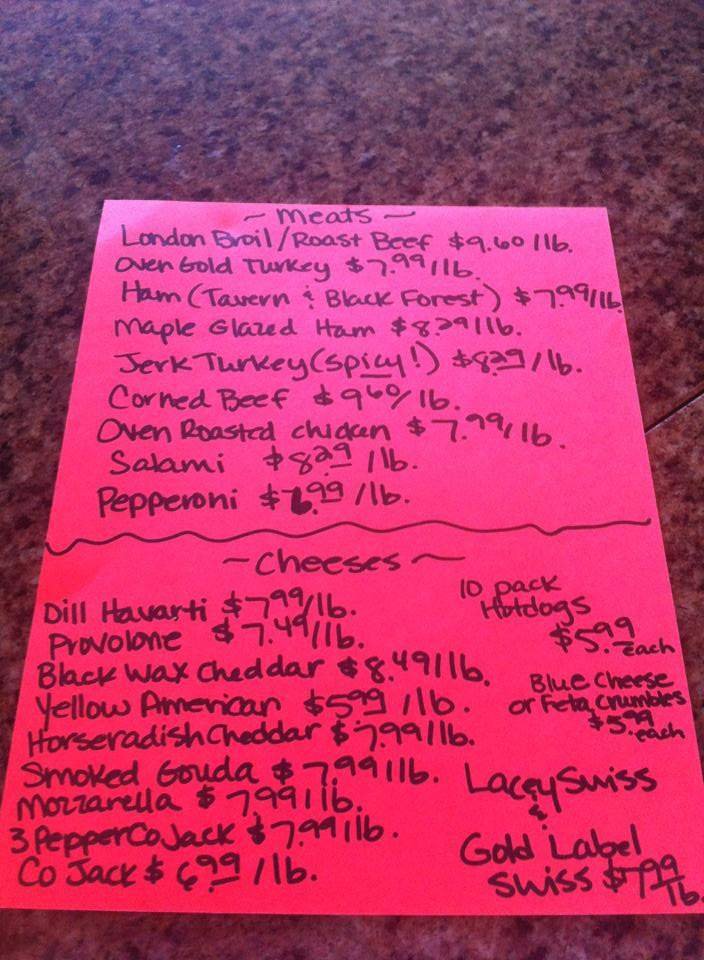 ~ Meats ~
London Broil/Roast Beef $9.60 /lb.
Oven Gold Turkey $7.99/lb.
Ham (Tavern & Black Forest) $7.99/lb
Maple Glazed Ham $8.29/lb.
Jerk Turkey (spicy!) $8.29/lb.
Corned Beef $9.60/lb.
Oven Roasted chicken $7.99/lb.
Salami $8.29/lb.
Pepperoni $6.99/lb.
~ Cheeses ~
Dill Havarti $7.99/lb.
Provolone $7.49/lb.
Black Wax Cheddar $8.49/lb.
Yellow American $5.99/lb.
Horseradish Cheddar $7.99/lb.
Smoked Gouda $7.99/lb.
Mozzarella $7.99/lb.
3 Pepper Co Jack $7.99/lb.
Co Jack $6.99/lb.
10 pack
Hotdogs
$5.99 each
Blue Cheese
or Feta Crumbles
$5.99 each
Lacey Swiss
&
Gold Label
Swiss $7.99 lb.